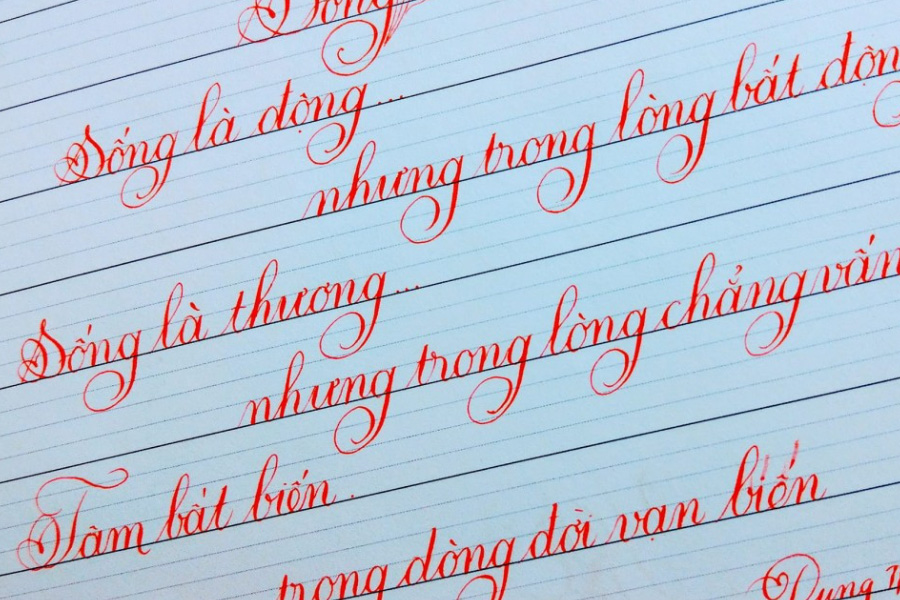 Sống là động...
nhưng trong lòng bất động
Sống là thương...
nhưng trong lòng chẳng vấn
Tâm bất biến.
trong dòng đời vạn biến
Dung